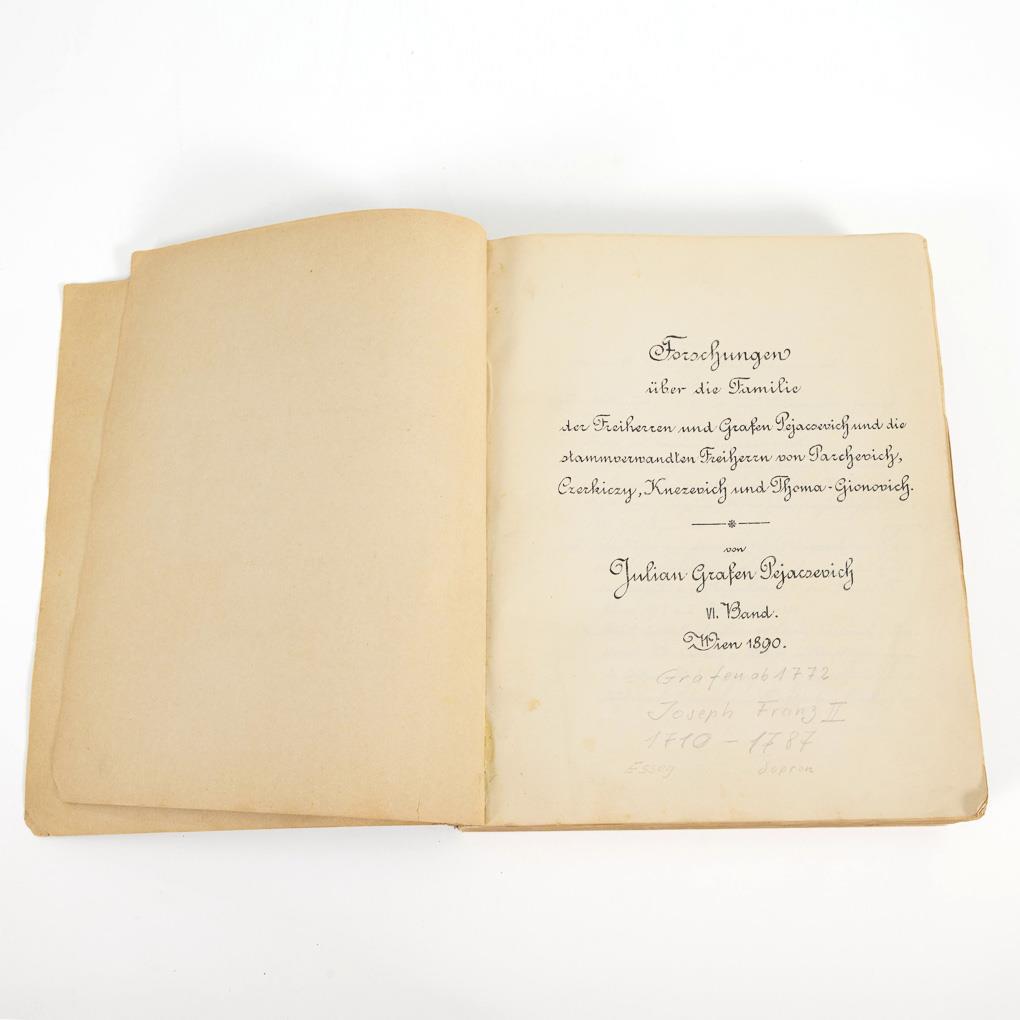 Forschungen
über die Familie
der Freiherren und Grafen Pejacsevich und die
stammverwandten Freiherrn von Parchevich,
Czerkiczy, Knezevich und Thoma-Gionovich.
von
Julian Grafen Pejacsevich
VI. Band.
Wien 1890.
Grafen ab 1772
Joseph Franz II
1710 - 1787
Esseg Sopron